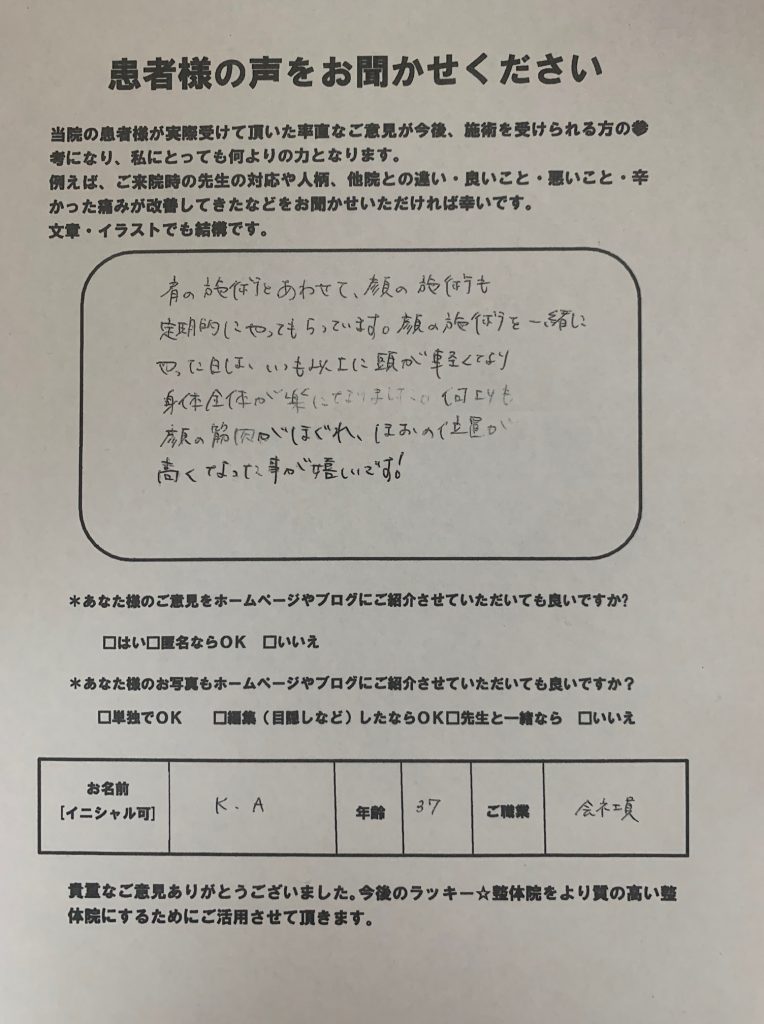 患者様の声をお聞かせください
当院の患者様が実際受けて頂いた率直なご意見が今後、施術を受けられる方の参
考になり、私にとっても何よりの力となります。
例えば、ご来院時の先生の対応や人柄、他院との違い・良いこと・悪いこと・辛
かった痛みが改善してきたなどをお聞かせいただければ幸いです。
文章・イラストでも結構です。
肩の施術とあわせて、顔の施術も
定期的にやってもらっています。顔の施術を一緒に
やった日は、いつも以上に頭が軽くなり
身体全体が楽になりました。何よりも
顔の筋肉がほぐれ、ほおの位置が
高くなった事が嬉しいです!
*あなた様のご意見をホームページやブログにご紹介させていただいても良いですか?
□はい□匿名ならOK □いいえ
*あなた様のお写真もホームページやブログにご紹介させていただいても良いですか?
□単独でOK □編集(目隠しなど)したならOK□先生と一緒なら □いいえ
お名前
[イニシャル可]
K.A
年齢
37
ご職業
会社員
貴重なご意見ありがとうございました。今後のラッキー☆整体院をより質の高い整
体院にするためにご活用させて頂きます。